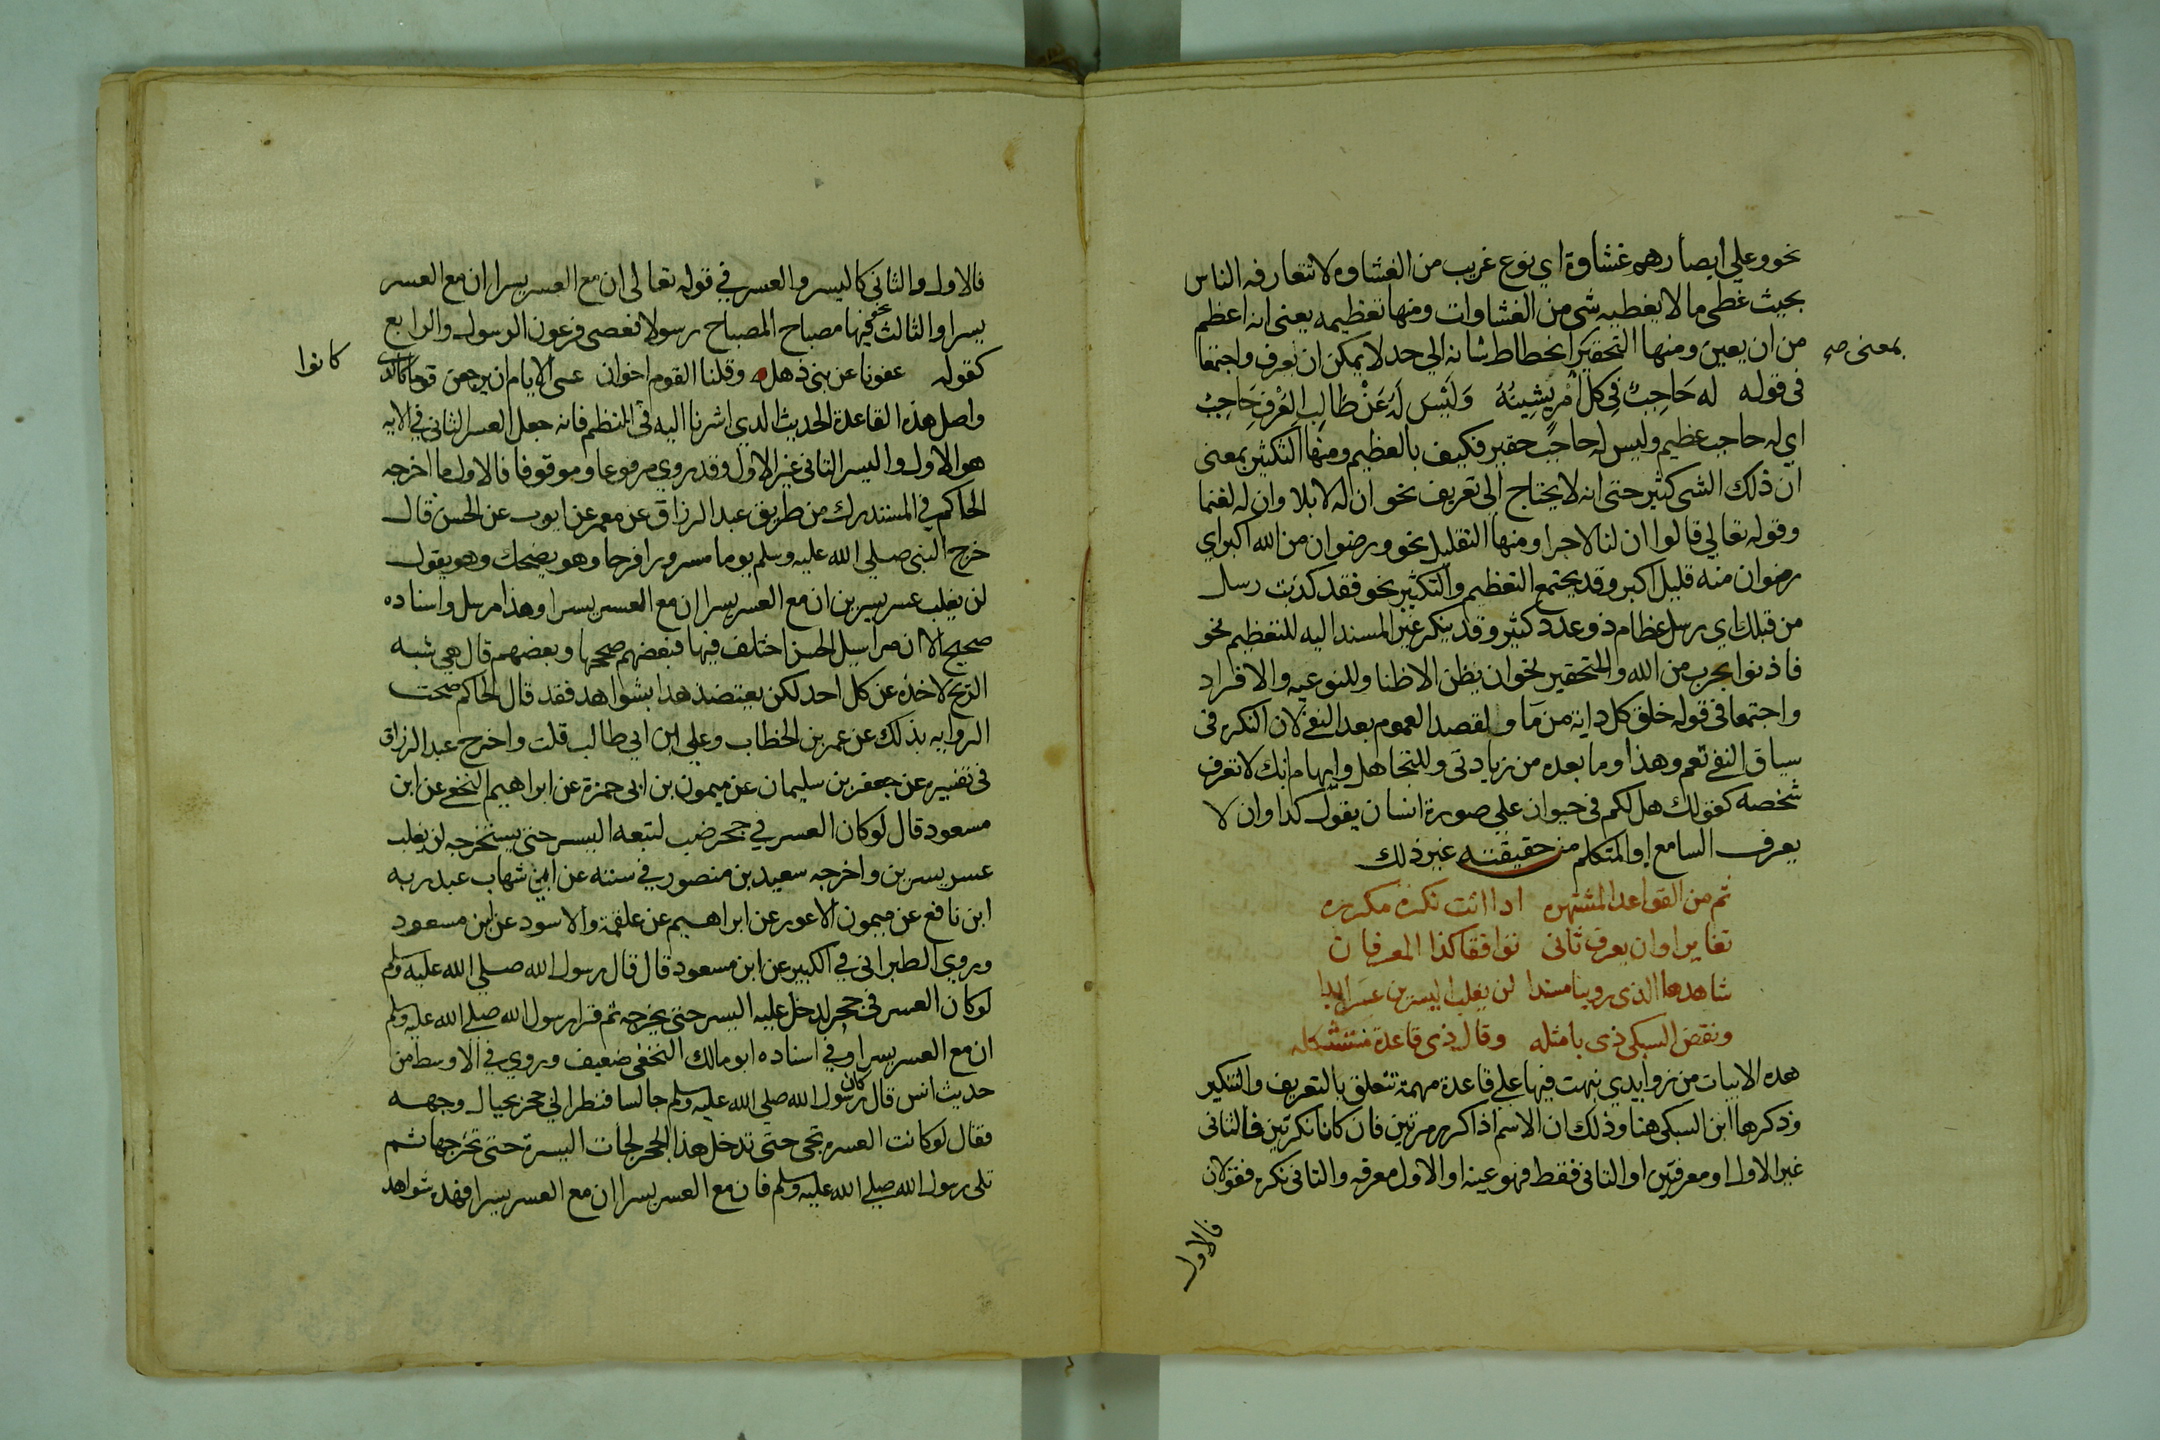 نحو وعلي ابصارهم غشاوة اي نوع غريب من الغشاوه لا تتعارفه الناس
بحيث غطى ما لا يغطيه شي من الغشاوات ومنها تعظيمه يعني انه اعظم
من ان يعين ومنها التحقير انحطاط شانه الي حد لا يمكن ان يعرف واجتمعا
بمعنى صح
في قوله له حَاجِبٌ فِي كل أمْرٍ يَشِينُهُ وَلَيْسَ لَهُ عَنْ طَالِبِ العُرْفِ حَاجِبُ
اي له حاجب عظيم وليس له حاجب حقير فكيف بالعظيم ومنها التكثير بمعنى
ان ذلك الشي كثير حتى انه لا يحتاج الى تعريف نحو ان له لابلا وان له لغنما
وقوله تعالي قالوا ان لنا لاجرا ومنها التقليل نحو ورضوان من الله اكبر اي
رضوان منه قليل اكبر وقد يجتمع التعظيم والتكثير نحو فقد كذبت رسل
من قبلك اي رسل عظام ذو عدد كثير وقد ينكر غير المسند اليه للتعظيم نحو
فاذنوا بحرب من الله وللتحقير نحو ان نظن الا ظنا وللنوعيه والافراد
واجتمعا في قوله خلق كل دابة من مَا ولقصد العموم بعد النفي لان النكره في
سياق النفي تعم وهذا وما بعده من زيادتي وللتجاهل وايهام انك لا تعرف
شخصه كقولك هل لكم في حيوان علي صورة انسان يقول كذا وان لا
يعرف السامع او المتكلم من حقيقته غير ذلك
ثم من القواعد المشتهره اذا اتت نكرة مكرره
تغايرا وان يعرف ثاني توافقا كذا المعرفان
شاهدها الذي روينا مسندا لن يغلب اليسرين عسر ابدا
ونقض السبكي ذي بامثله وقال ذي قاعدة مستشكله
هذه الابيات من زوايدي نبهت فيها علي قاعدة مهمة تتعلق بالتعريف والتنكير
وذكرها ابن السبكي هنا وذلك ان الاسم اذا كرر مرتين فان كانا نكرتين فالثاني
غير الاول او معرفتين او الثاني فقط فهو عينه او الاول معرفه والثاني نكره فقولان
فالاول
فالاول والثاني كاليسر والعسر في قوله تعالى ان مع العسر يسرا ان مع العسر
يسرا والثالث نحو فيها مصباح المصباح رسولا فعصى فرعون الرسول والرابع
كقوله عفونا عن بني ذهل وقلنا القوم اخوان عسى الايام ان يرجعن قوما كالذي
كانوا
واصل هذه القاعدة الحديث الذي اشرنا اليه في النظم فانه جعل العسر الثاني في الايه
هو الاول واليسر الثاني غير الاول وقد روي مرفوعا وموقوفا فالاول ما اخرجه
الحاكم في المستدرك من طريق عبد الرزاق عن معمر عن ايوب عن الحسن قال
خرج النبي صلي الله عليه وسلم يوما مسرورا فرحا وهو يضحك وهو يقول
لن يغلب عسر يسرين ان مع العسر يسرا ان مع العسر يسرا وهذا مرسل واسناده
صحيح الا ان مراسيل الحسن اختلف فيها فبعضهم صححها وبعضهم قال هي شبه
الريح لاخذه عن كل احد لكن يعتضد هذا بشواهد فقد قال الحاكم صحت
الروايه بذلك عن عمر بن الخطاب وعلي ابن ابي طالب قلت واخرج عبد الرزاق
في تفسيره عن جعفر بن سليمان عن ميمون بن ابي حمزة عن ابراهيم النخعي عن ابن
مسعود قال لو كان العسر في جحر ضب لتبعه اليسر حتى يستخرجه لن يغلب
عسر يسرين واخرجه سعيد بن منصور في سننه عن ابي شهاب عبد ربه
ابن نافع عن ميمون الاعور عن ابراهيم عن علقمة والاسود عن ابن مسعود
وروي الطبراني في الكبير عن ابن مسعود قال قال رسول الله صلي الله عليه وسلم
لو كان العسر في جحر لدخل عليه اليسر حتى يخرجه ثم قرا رسول الله صلي الله عليه وسلم
ان مع العسر يسرا وفي اسناده ابو مالك النخعي ضعيف وروي في الاوسط من
حديث انس قال كان رسول الله صلي الله عليه وسلم جالسا فنظر الي حجر بحيال وجهه
فقال لو كانت العسره تجي حتى تدخل هذا الحجر لجات اليسرة حتى تخرجها ثم
تلى رسول الله صلي الله عليه وسلم فان مع العسر يسرا ان مع العسر يسرا فهذه شواهد